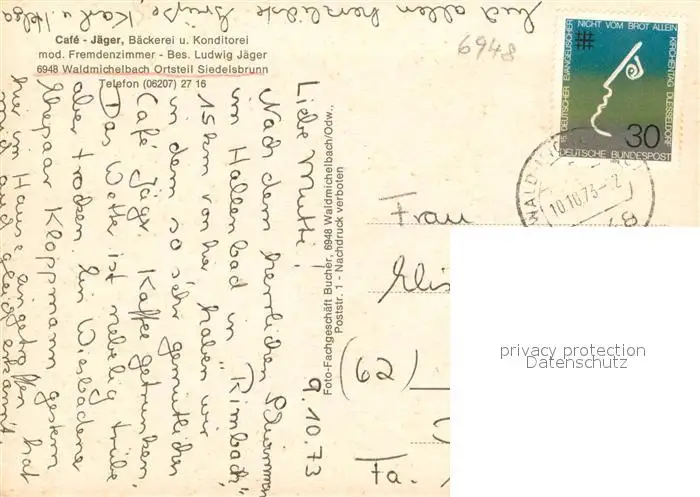 Café - Jäger, Bäckerei u. Konditorei
mod. Fremdenzimmer - Bes. Ludwig Jäger
6948 Waldmichelbach Ortsteil Siedelsbrunn
Telefon (06207) 27 16
9.10.73
Liebe Mutti!
Nach dem herrlichen Schwimmen
im Hallenbad in "Rimbach",
15 km von hier haben wir
in dem so sehr gemütlichen
Café Jäger Kaffee getrunken.
Das Wetter ist nebelig trübe
aber trocken. Ein Wiesbadener
Ehepaar Kloppmann gestern
hier im Hause eingetroffen hat
mich auch gleich erkannt
Und allen herzlichste Grüße Karl u. Helga
Foto-Fachgeschäft Bucher, 6948 Waldmichelbach/Odw.,
Poststr. 1 - Nachdruck verboten
6948
15. DEUTSCHER EVANGELISCHER KIRCHENTAG DUESSELDORF
NICHT VOM BROT ALLEIN
30
DEUTSCHE BUNDESPOST
10.10.73-2
Frau
Elis
(62)
Fa.
privacy protection
Datenschutz